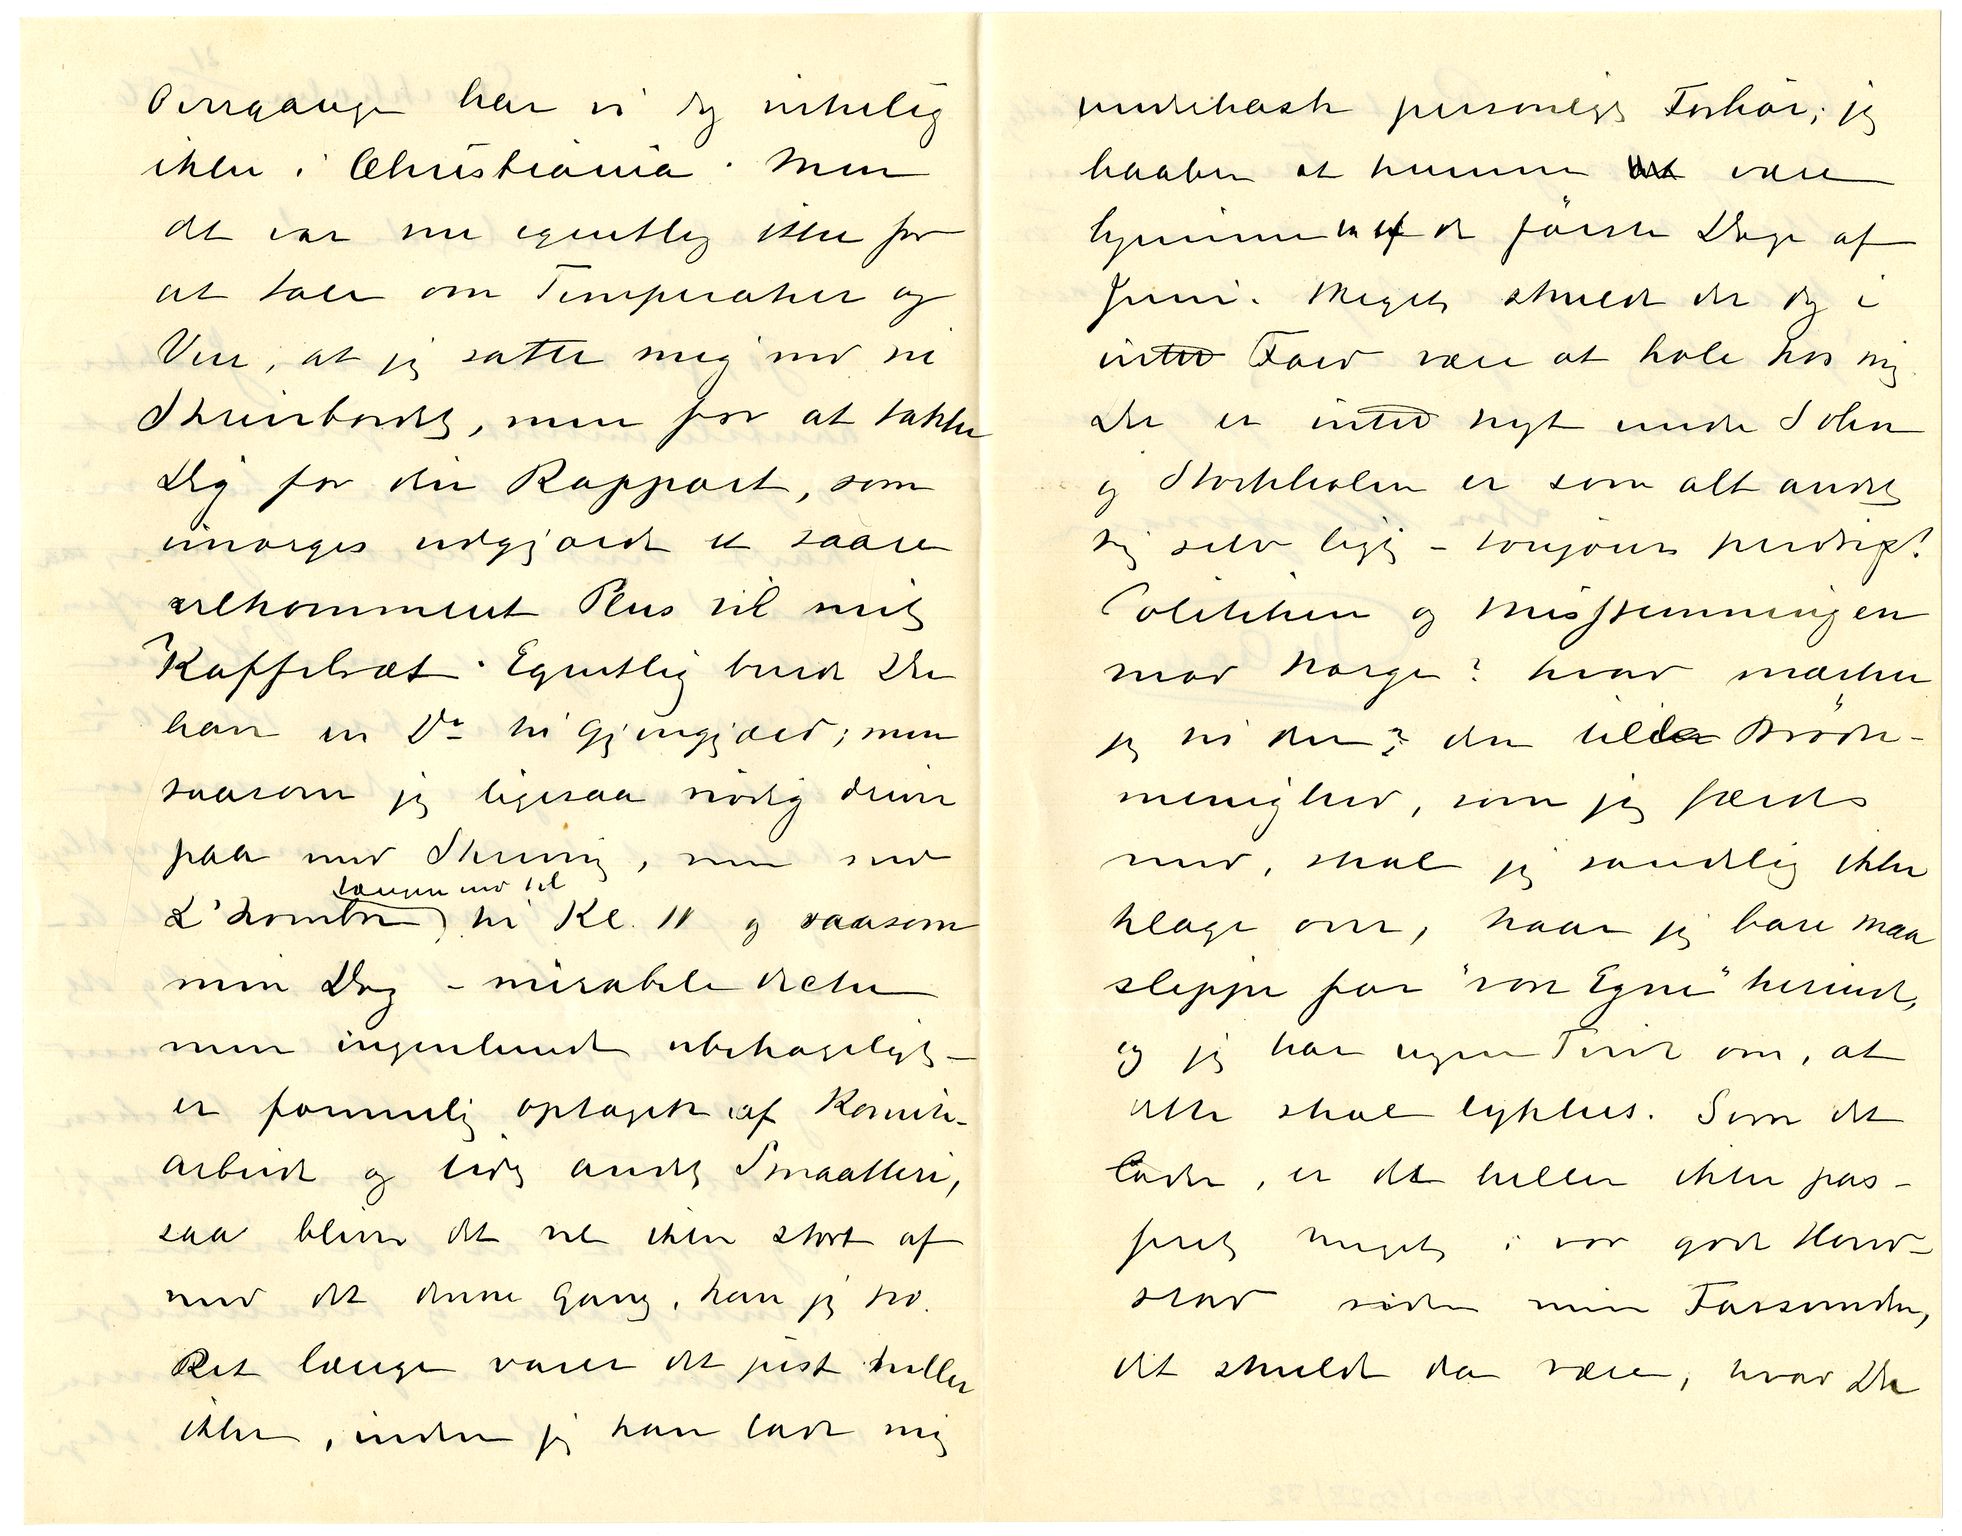 Overgange har vi dog virkelig
ikke i Christiania. Men
det var nu egentlig ikke for
at tale om Temperatur og
Veir, at jeg satte mig ned ved
Skrivbordet, men for at takke
Dig for din Rapport, som
imorges udgjorde et saare
velkomment Plus til mit
Kaffebræt. Egentlig burde Du
have en Do til Gjengjæld; men
saasom jeg ligesaa nødig driver
paa med Skrivning, som med
L'hombre længere ned til Kl. 11 og saasom
min Dag – mirabile dictu
men ingenlunde ubehageligt –
er formelig optaget af Komite-
arbeide og lidt andet Smaatteri,
saa bliver det vel ikke stort af
med det denne Gang, kan jeg tro.
Ret længe varer det just heller
ikke, inden jeg kan lade mig
underkaste personligt Forhør; jeg
haaber at kunne være
hjemme de første Dage af
Juni. Meget skulde der dog i
intet Fald være at hale hos mig.
Der er intet nyt under Solen
og Stockholm er som alt andet
sig selv ligt – toujours perdrix!
Politiken og Misstemningen
mod Norge? hvad mærker
jeg til den? den lille Brøde-
menighed, som jeg færdes
med, skal jeg sandelig ikke
klage over, naar jeg bare maa
slippe for "vore Egne" herinde,
og jeg har ingen Tvivl om, at
dette skal lykkes. Som det
lader, er det heller ikke pas-
seret meget i vor gode Hoved-
stad siden min Forsvinden,
det skulde da være, hvad Du